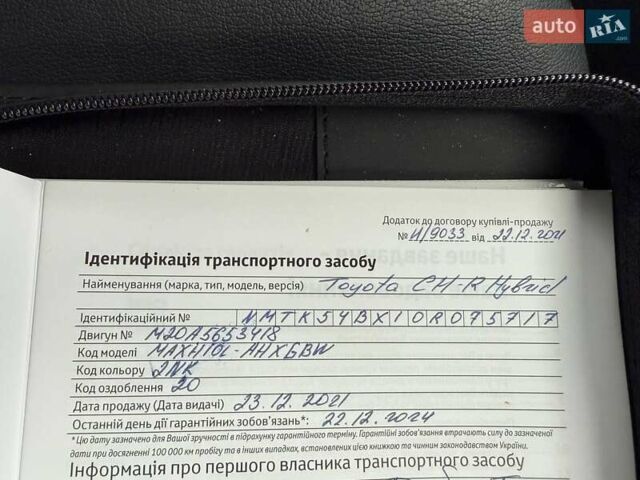 auto RIA.com
Додаток до договору купівлі-продажу
№ И/9033 від 22.12.2021
Ідентифікація транспортного засобу
Найменування (марка, тип, модель, версія) Toyota CH-R Hybrid
Ідентифікаційний № NMTK54BX10R075717
Двигун № M20A5653418
Код моделі MAXH10L-AHXGBW
Код кольору 2NK
Код оздоблення 20
Дата продажу (Дата видачі) 23.12.2021
Останній день дії гарантійних зобов'язань*: 22.12.2024
* Цю дату зазначено для Вашої зручності в підрахунку гарантійного терміну. Гарантійні зобов'язання втрачають силу до зазначеної
дати при досягненні 100 000 км пробігу та в інших випадках, встановлених цією книжкою та чинним законодавством України.
Інформація про першого власника транспортного засобу